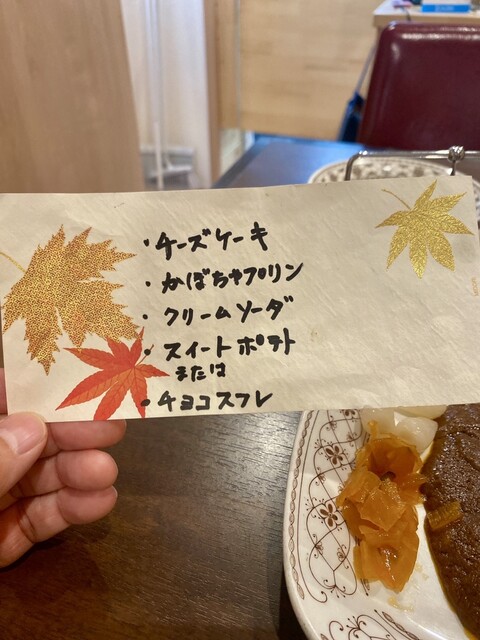 ・チーズケーキ
・かぼちゃプリン
・クリームソーダ
・スイートポテト
または
・チョコスフレ